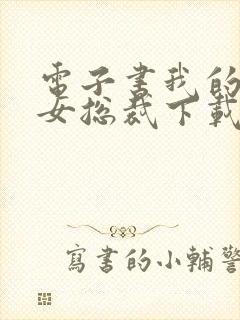 電子書我的
女總裁下載
寫書的小輔警